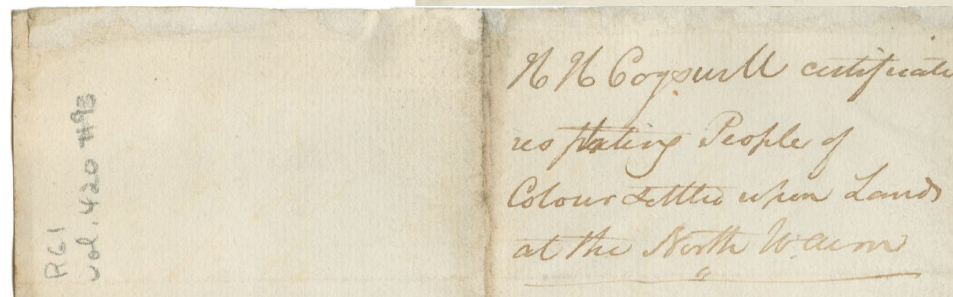 RG1
Vol. 420 #93
H H Cogswell certificate
respecting People of
Colour settled upon Lands
at the North W. arm